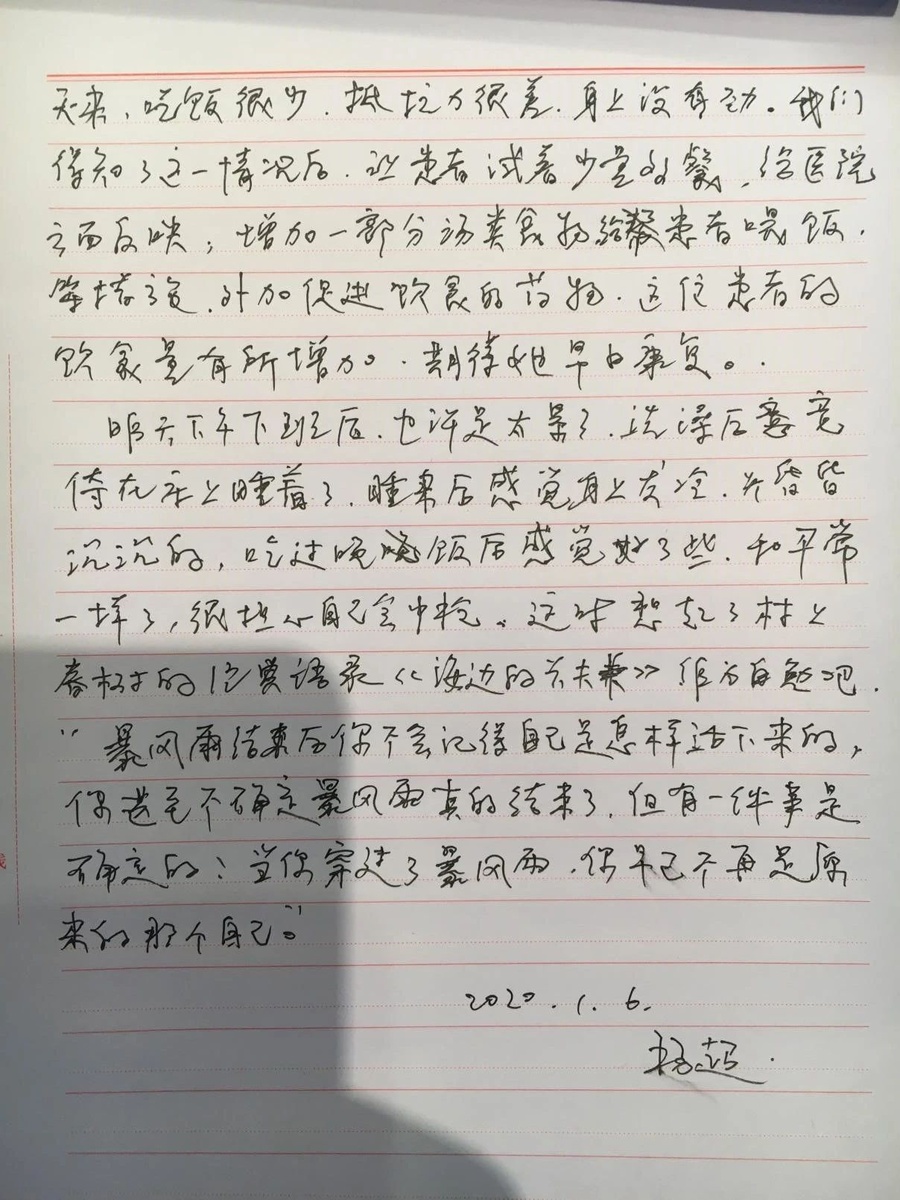 天来，吃饭很少，抵抗力很差，身上没有劲。我们
得知了这一情况后，让患者试着少量多餐，给医院
方面反映，增加一部分汤类食物给患者喂饭，
等措施，外加促进饮食的药物，这位患者的
饮食量有所增加，期待她早日康复。
昨天下午下班后，也许是太累了，洗澡后竟
倚在床上睡着了，睡来后感觉身上发冷，头昏昏
沉沉的，吃过晚饭后感觉好了些，和平常
一样了，很担心自己会中枪。这时想起了村上
春树的经典语录《海边的卡夫卡》作为自勉吧，
“暴风雨结束后你不会记得自己是怎样活下来的，
你甚至不确定暴风雨真的结束了，但有一件事是
确定的：当你穿过了暴风雨，你早已不再是原
来的那个自己。”
2020.1.6.
杨超